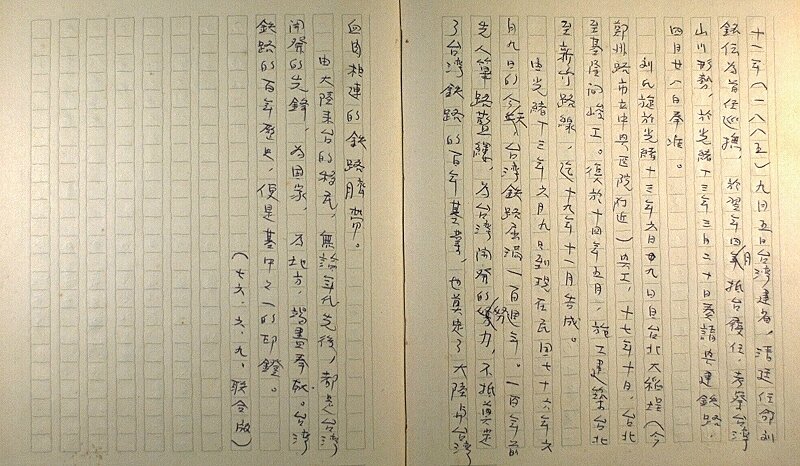 十一年（一八八五）九月五日台湾建省，清廷任命刘
铭传为首任巡抚，於翌年四月抵台履任，考察台湾
山川形势，於光绪十三年三月二十日奏請兴建鉄路，
四月廿八日奉准。
刘氏旋於光绪十三年六月廿九日自台北大稻埕（今
鄭州路市立中兴医院附近）兴工，十七年十月，台北
至基隆间峻工。復於十四年五月，施工建築台北
至新竹路線，迄十九年十一月告成。
由光緒十三年六月九日到現在民国七十六年六
月九日的今天，台湾鉄路届满一百周年。一百年前
先人篳路藍縷，为台湾开發的努力，不抵奠定
了台湾鉄路的百年基業，也奠定了大陸与台湾
血肉相連的鉄路臍帶。
由大陸来台的移民，無論年代先後，都是台湾
开發的先鋒，为国家，为地方，竭盡奉献。台湾
鉄路的百年歷史，便是基中之一的印證。
（七六．六．九．联合版）